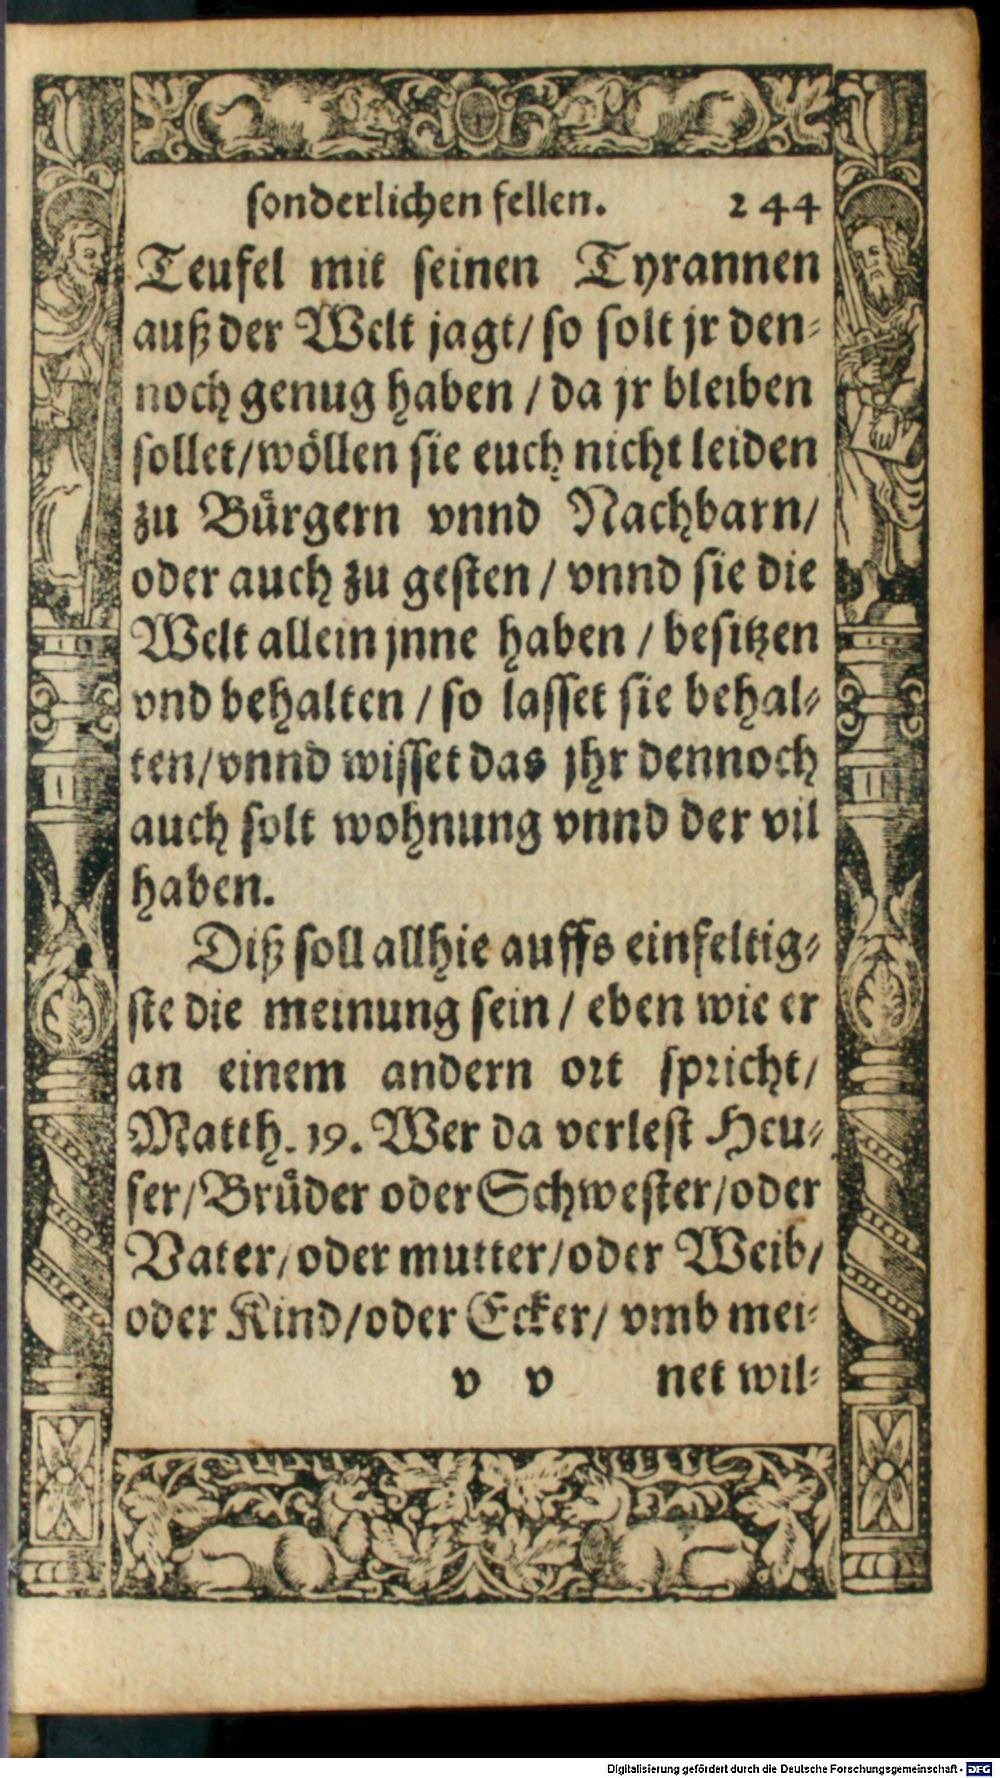 sonderlichen fellen. 244
Teufel mit seinen Tyrannen
auß der Welt jagt/ so solt jr den-
noch genug haben / da jr bleiben
sollet/wöllen sie euch nicht leiden
zu Bürgern vnnd Nachbarn/
oder auch zu gesten / vnnd sie die
Welt allein jnne haben / besitzen
vnd behalten / so lasset sie behal-
ten/vnnd wisset das jhr dennoch
auch solt wohnung vnnd der vil
haben.
Diß soll allhie auffs einfeltig-
ste die meinung sein / eben wie er
an einem andern ort spricht/
Matth. 19. Wer da verlest Heu-
ser/Brüder oder Schwester/oder
Vater/oder mutter/oder Weib/
oder Kind/oder Ecker/ vmb mei-
v v net wil-
Digitalisierung gefördert durch die Deutsche Forschungsgemeinschaft - DFG